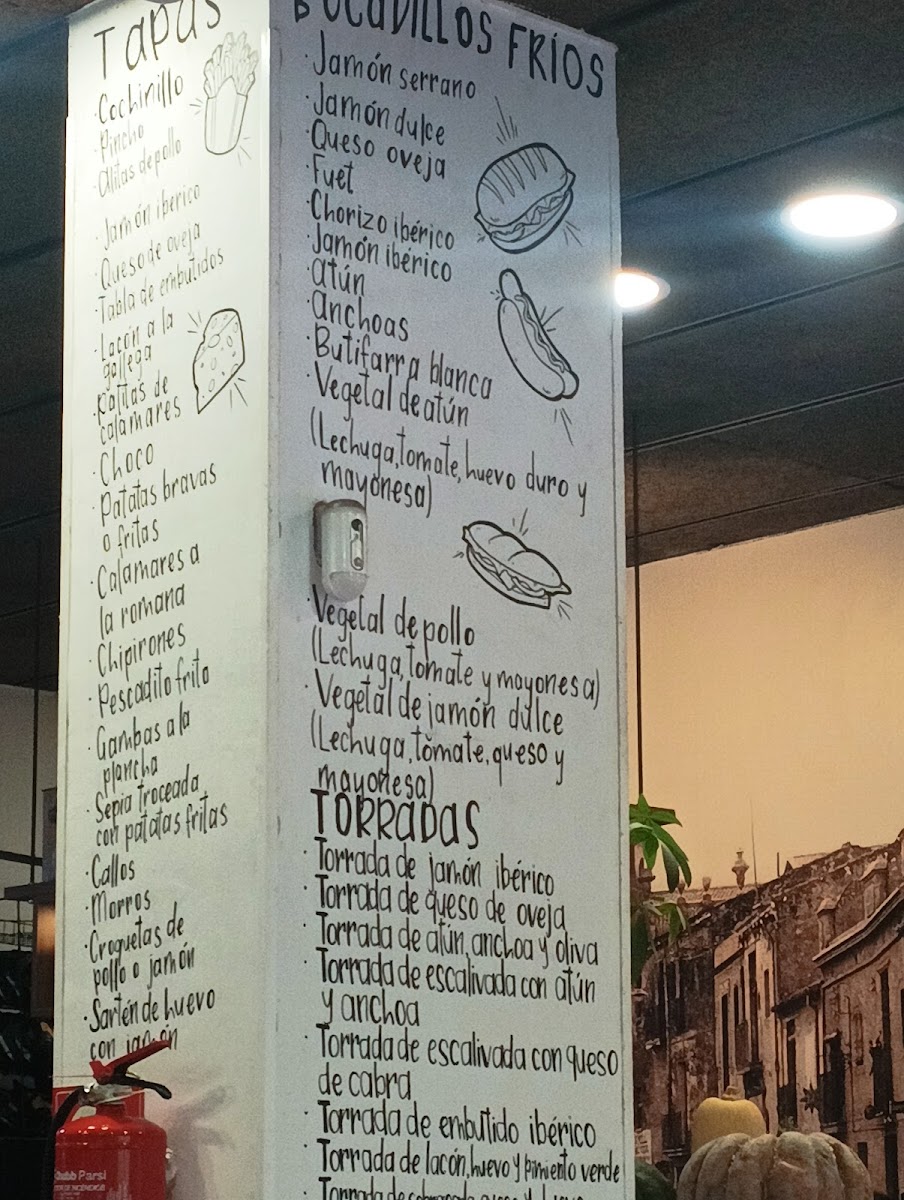 TAPAS
· Cochinillo
· Pincho
· Alitas de pollo
· Jamón iberico
· Queso de oveja
· Tabla de embutidos
· Lacón a la
gallega
· Patitas de
calamares
· Choco
· Patatas bravas
o fritas
· Calamares a
la romana
· Chipirones
· Pescadito frito
· Gambas a la
plancha
· Sepia troceada
con patatas fritas
· Callos
· Morros
· Croquetas de
pollo o jamón
· Sartén de huevo
con jamón
BOCADILLOS FRÍOS
· Jamón serrano
· Jamón dulce
· Queso oveja
· Fuet
· Chorizo ibérico
· Jamón ibérico
· Atún
· Anchoas
· Butifarra blanca
· Vegetal de atún
(Lechuga, tomate, huevo duro y
mayonesa)
· Vegetal de pollo
(Lechuga, tomate y mayonesa)
· Vegetal de jamón dulce
(Lechuga, tomate, queso y
mayonesa)
TORRADAS
· Torrada de jamón ibérico
· Torrada de queso de oveja
· Torrada de atún, anchoa y oliva
· Torrada de escalivada con atún
y anchoa
· Torrada de escalivada con queso
de cabra
· Torrada de embutido ibérico
· Torrada de lacón, huevo y pimiento verde
· Torrada de
Parsi